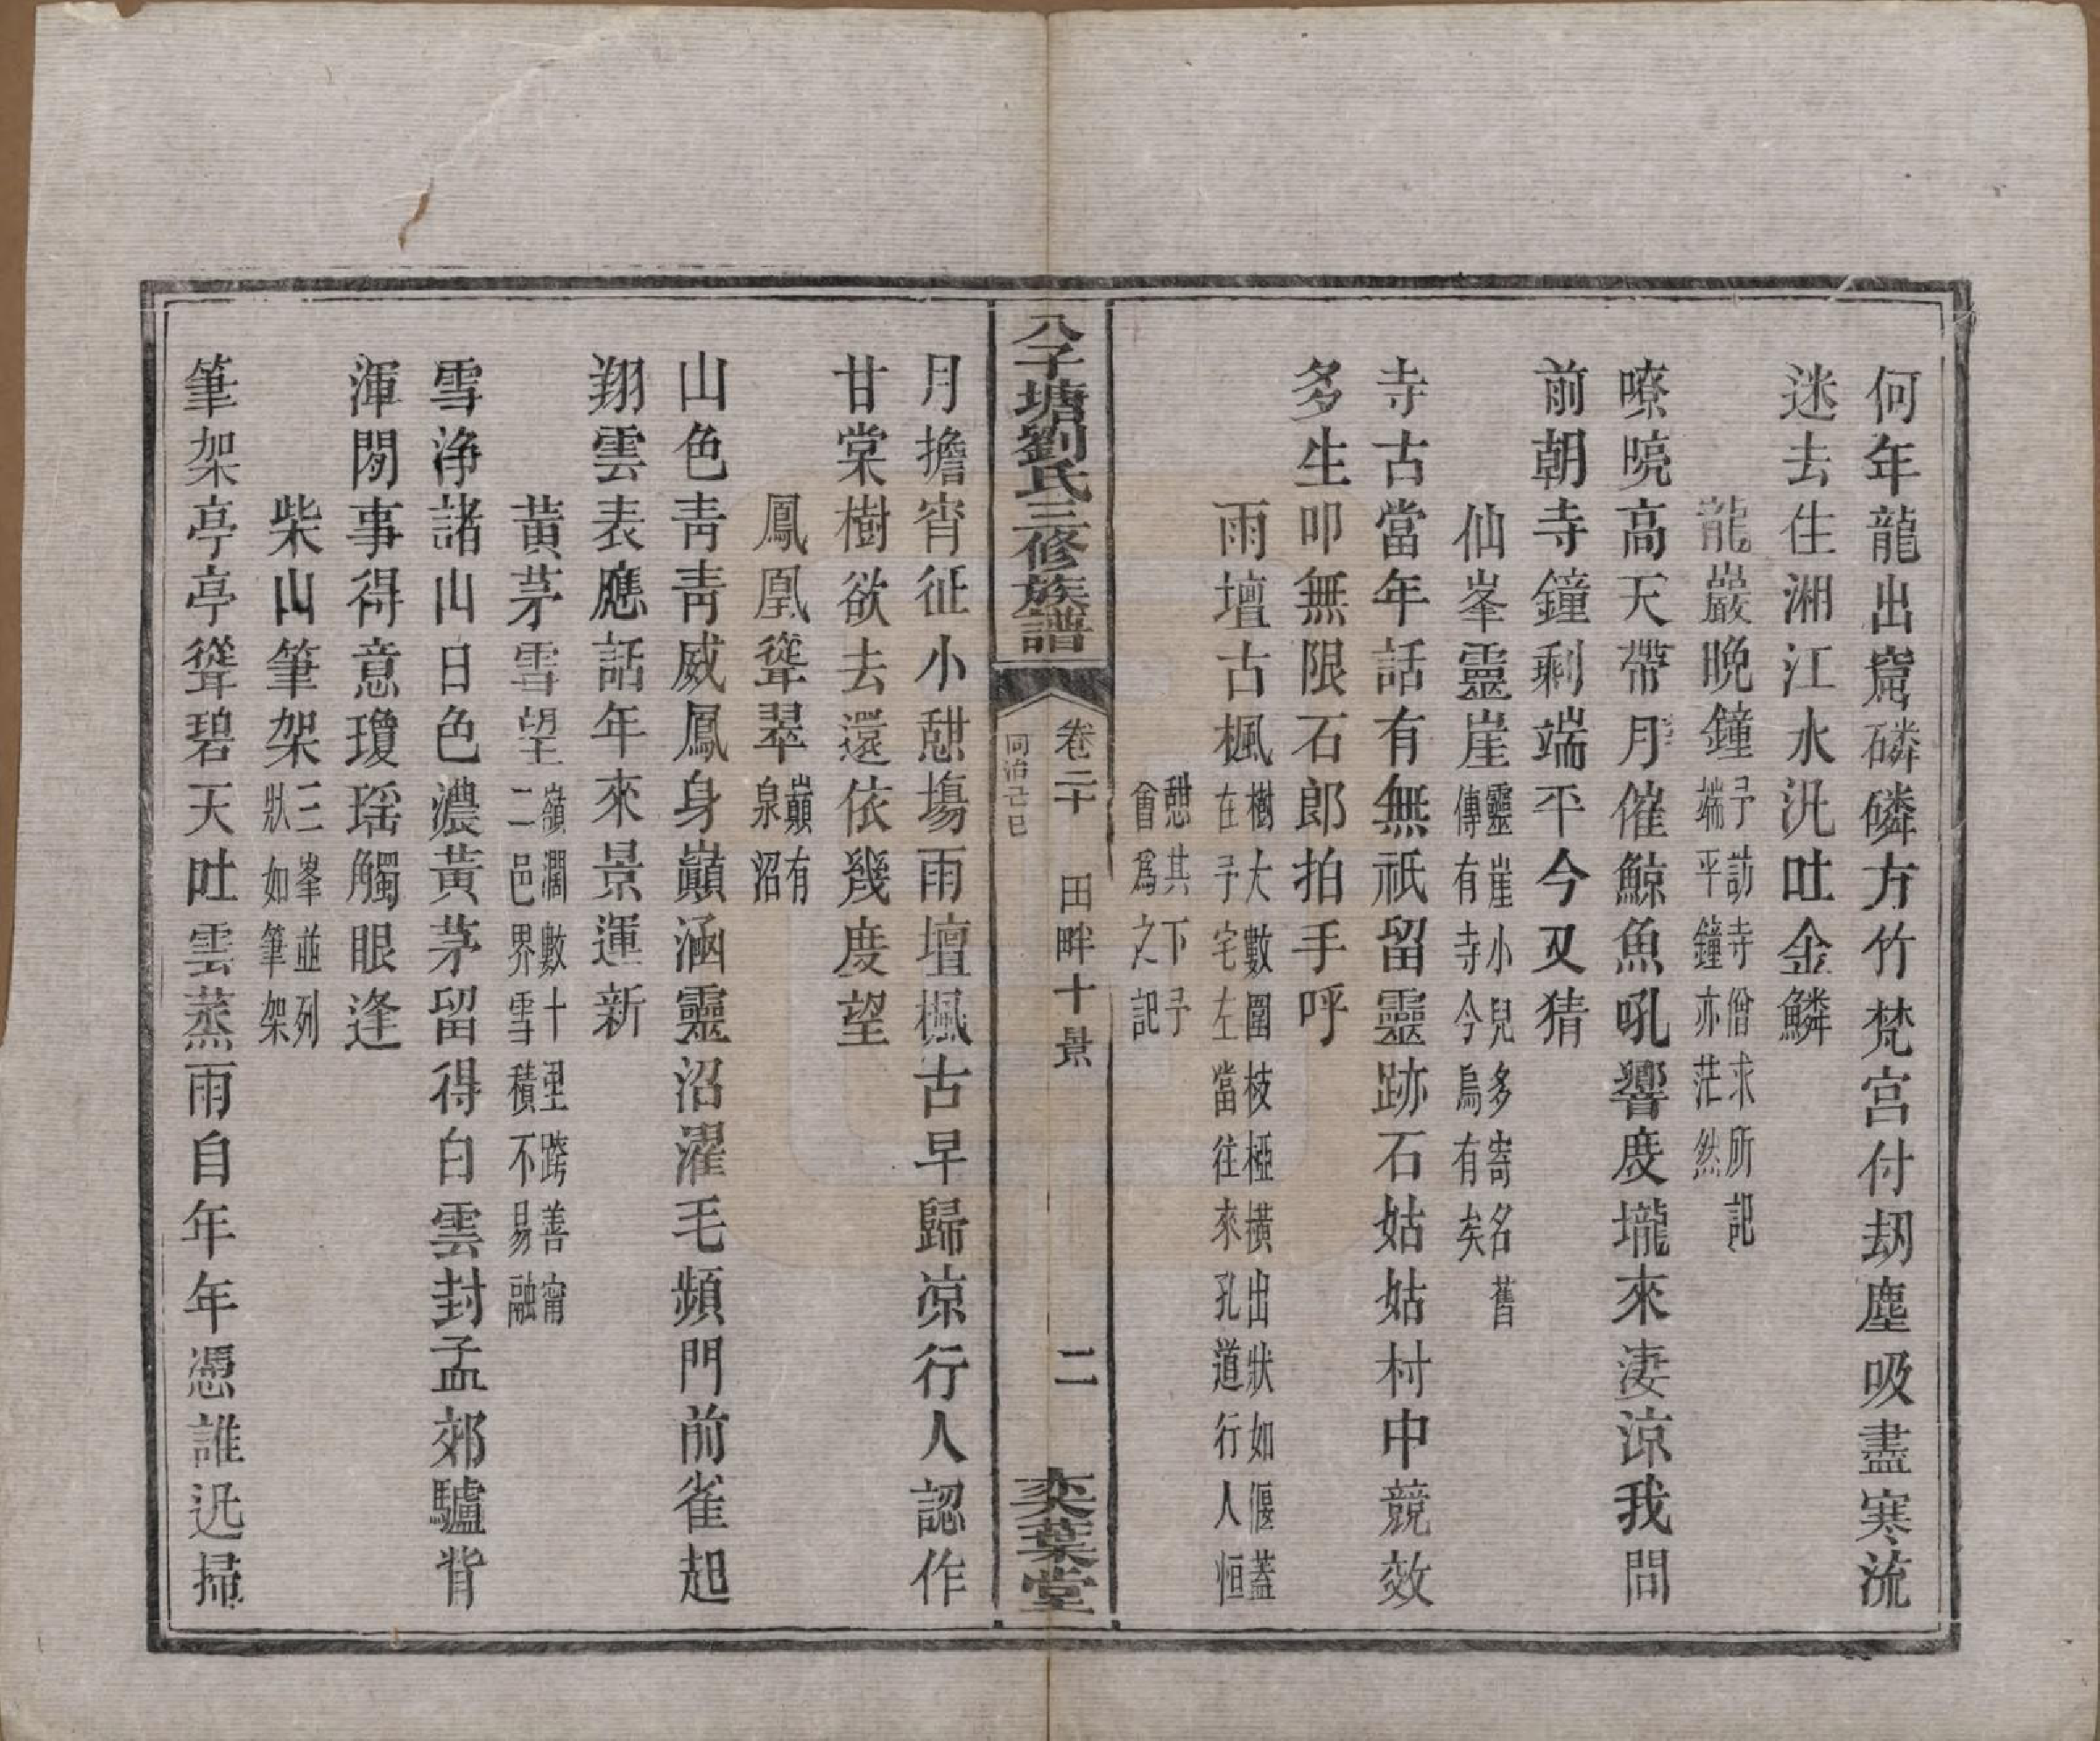 何年龍出窟磷磷方竹梵宮付刼塵吸盡寒流
迷去住湘江水汎吐金鱗
龍巖晚鐘予訪寺僧求所記
端平鐘亦茫然
嘹喨高天帶月催鯨魚吼響度壠來淒涼我問
前朝寺鐘剩端平今又猜
仙峯靈崖靈崖小兒多寄名舊
傳有寺今烏有矣
寺古當年話有無祇留靈跡石姑姑村中競效
多生叩無限石郎拍手呼
雨壇古楓樹大數圍枝椏橫出狀如偃蓋
在予宅左當往來孔道行人恒
憇其下予
會爲之記
公子塘劉氏三修族譜
卷二十 田畔十景 二 奕葉堂
同治己巳
月擔宵征小憇塲雨壇楓古早歸凉行人認作
甘棠樹欲去還依幾度望
鳳凰聳翠巔有
泉沼
山色青青威鳳身巔涵靈沼濯毛頻門前雀起
翔雲表應話年來景運新
黃茅雪望嶺濶數十里跨善甯
二邑界雪積不易融
雪浄諸山日色濃黃茅留得白雲封孟郊驢背
渾閒事得意瓊瑶觸眼逢
柴山筆架三峯並列
狀如筆架
筆架亭亭聳碧天吐雲蒸雨自年年憑誰迅掃